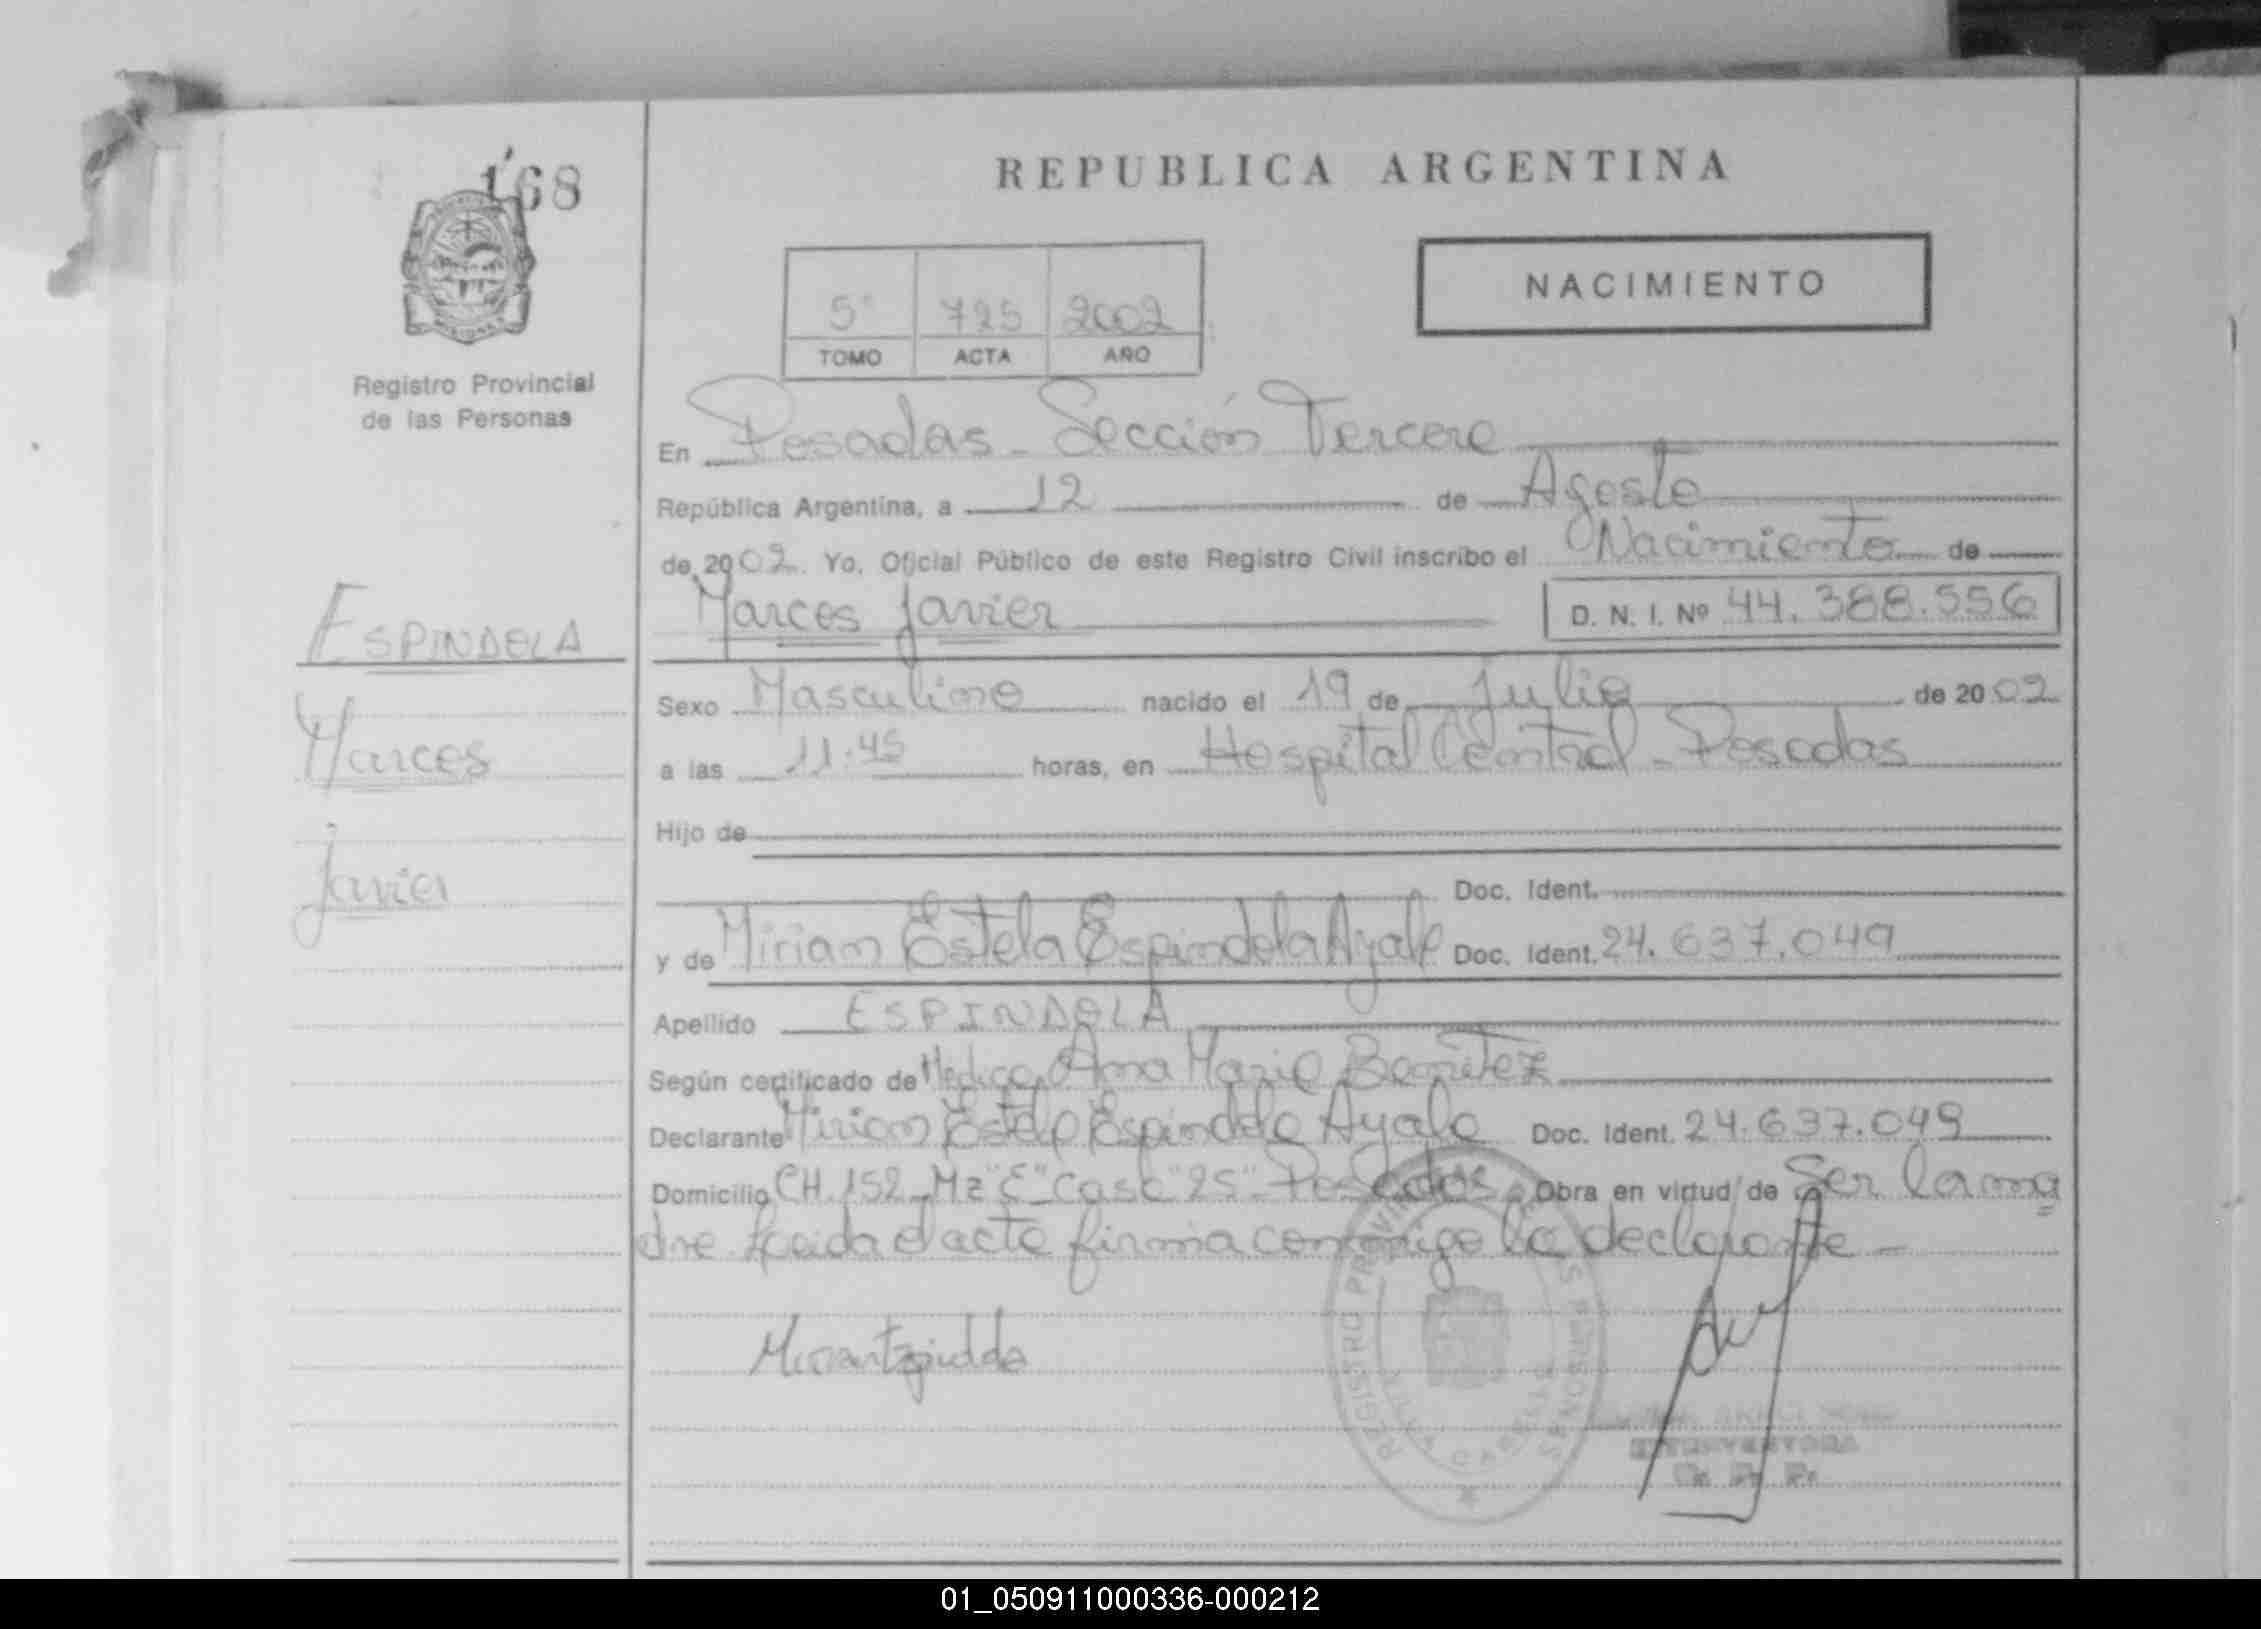 168
REPUBLICA ARGENTINA
NACIMIENTO
5° 725 2002
TOMO ACTA AÑO
Registro Provincial
de las Personas
En Posadas - Sección Tercera
República Argentina, a 12 de Agosto
de 2002. Yo, Oficial Público de este Registro Civil inscribo el Nacimiento de
Marcos Javier D. N. I. Nº 44.388.556
ESPINDOLA
Marcos
Javier
Sexo Masculino nacido el 19 de Julio de 2002
a las 11.45 horas, en Hospital Central - Posadas
Hijo de
Doc. Ident.
y de Mirian Estela Espindola Ayala Doc. Ident. 24.637.049
Apellido ESPINDOLA
Según certificado de Médica Ana Maria Benitez
Declarante Mirian Estela Espindola Ayala Doc. Ident. 24.637.049
Domicilio CH. 152 - Mz "E" Casa "25" - Posadas Obra en virtud de Ser la ma
dre Leida el acta firma conmigo la declarante -
REGISTRO PROVINCIAL DE LAS PERSONAS
INTERVENTORA
01_050911000336-000212